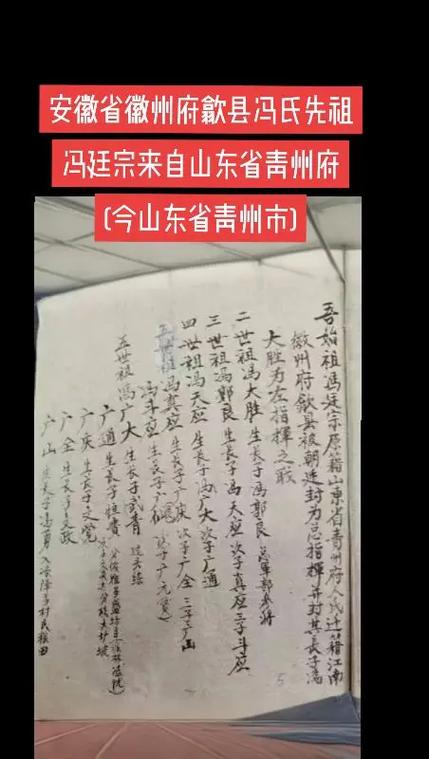 安徽省徽州府歙县冯氏先祖
冯廷宗来自山东省青州府
(今山东省青州市)
吾始祖馮廷宗原籍山東省青州府人氏迁籍江南
徽州府歙县被朝廷封为总指揮并封其長子馮
大胜为左指揮之職
二世祖冯大胜生長子馮郭良总軍部参將
三世祖冯郭良生長子冯天应次子真应三子斗应
四世祖冯天应生長子冯广大次子广通
五世祖冯真应生長子广庆次子广全三子广山
冯斗应生長子广仙次子广元
五世祖馮广大生長子武青
广通生長子
广庆生長子文党
广全生長子文政
广山生長子馮勇入
5